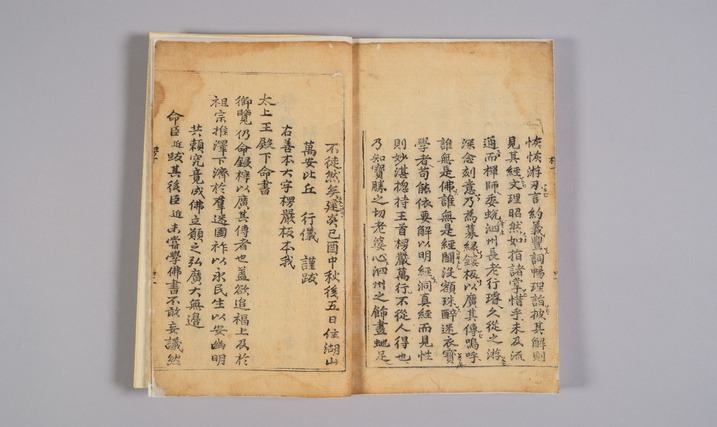 恢恢游刃言約義豐詞暢理詣披其解則
見其經文理昭然如指諸掌惜乎未及流
通而禪師委蛻泗州長老行璿久從之游
深念刻意乃爲募緣鋟板以廣其傳嗚呼
誰無是佛誰無是經關沒額珠醉迷衣寶
學者苟能依要解以明經洞真經而見性
則妙湛揔持王首楞嚴萬行不從人得也
乃知寶勝之切老婆心泗州之餙畫虵足
不徒然矣建炎己酉中秋後五日住湖山
萬安比丘 行儀 謹跋
右善本大字楞嚴板本我
太上王殿下命書
御覽仍命鋟梓以廣其傳者也盖欲追福上及於
祖宗推澤下濟於羣迷國祚以永民生以安幽明
共賴究竟成佛立願之弘廣大無邊
命臣近跋其後臣近未嘗學佛書不敢妄議然